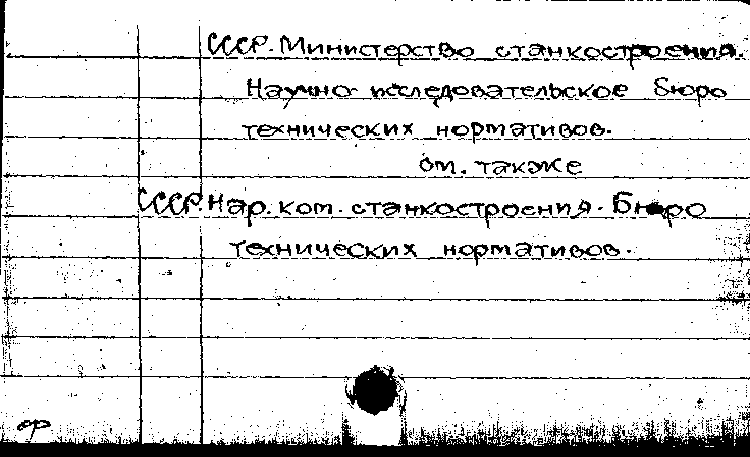 СССР. Министерство станкостроения.
Научно-исследовательское Бюро
технических нормативов.
см. также
СССР. Нар. ком. станкостроения. Бюро
технических нормативов.
ор